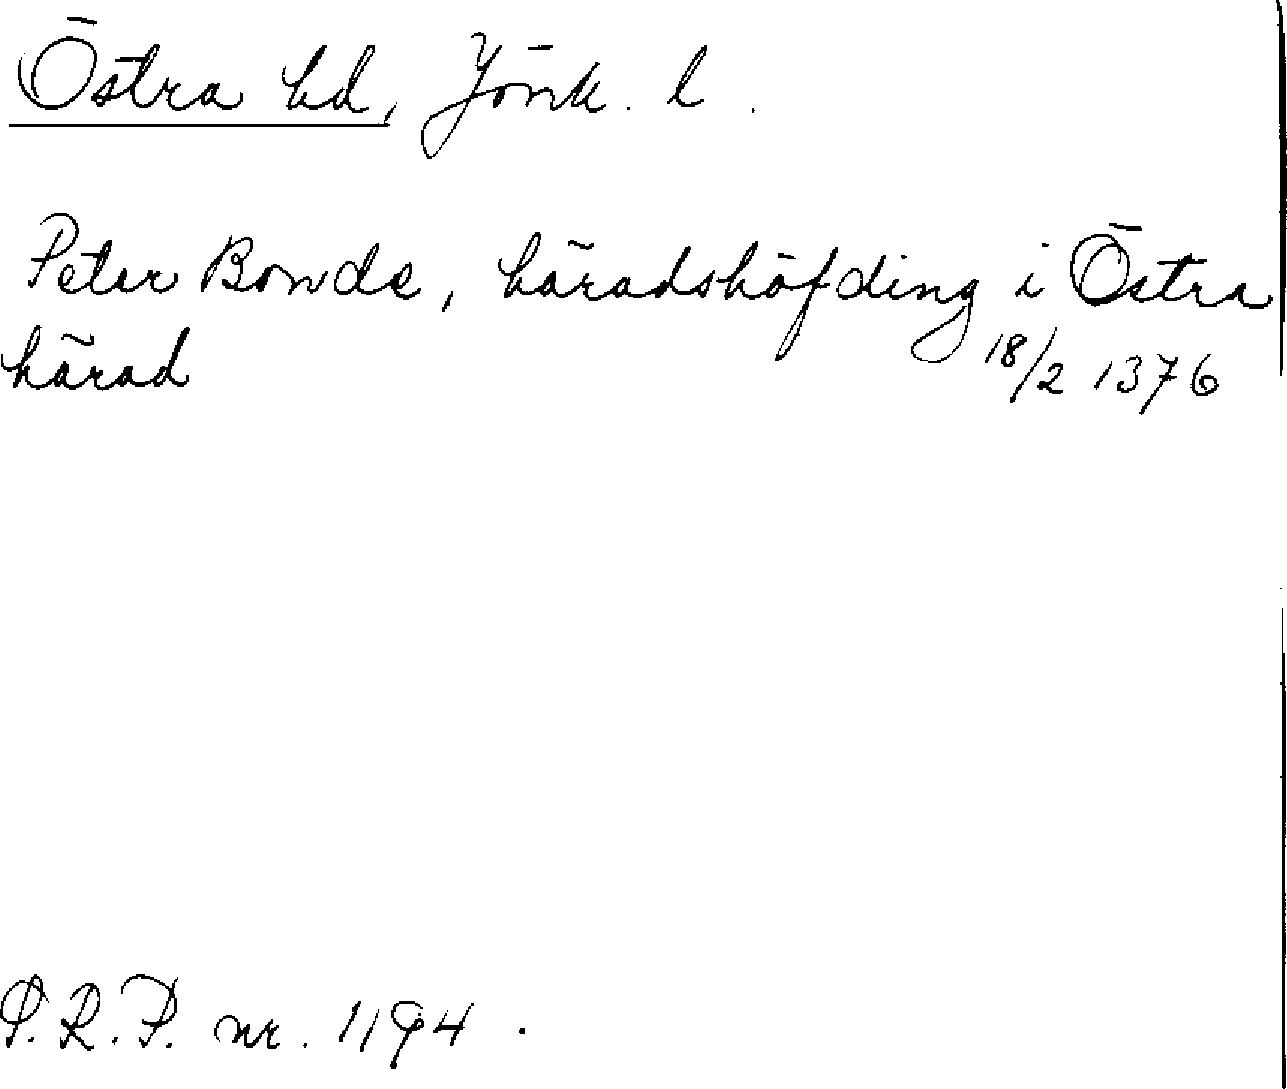 Östra hd, Jönk. l.
Peter Bonde, häradshöfding i Östra
härad 18/2 1376
S.R.P. nr. 1194.